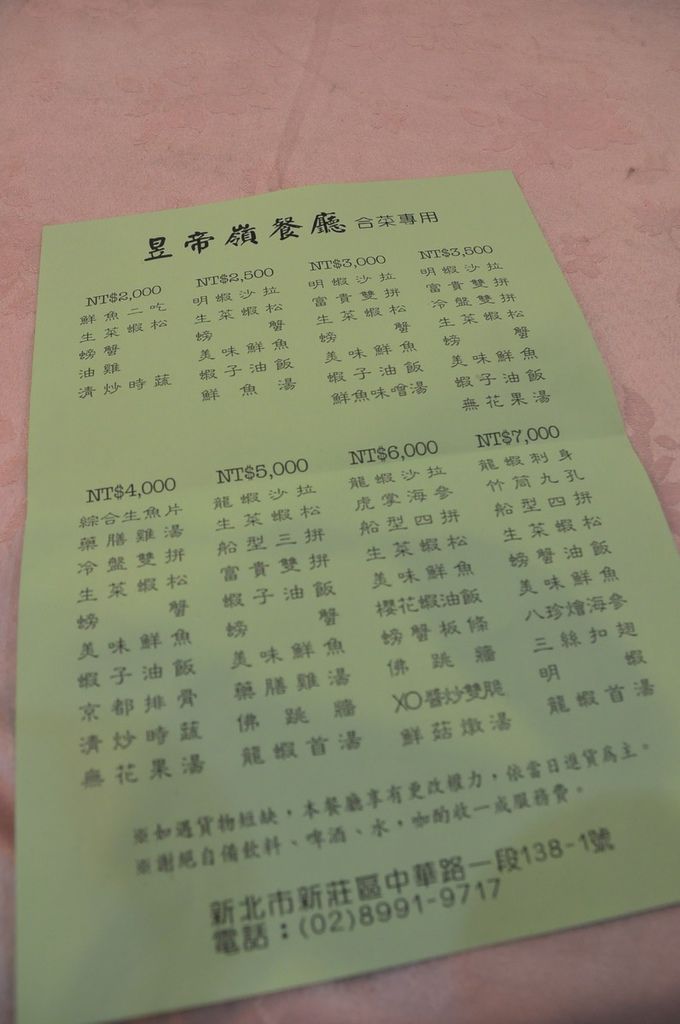 昱帝嶺餐廳 合菜專用
NT$2,000
鮮魚二吃
生菜蝦松
螃蟹
油雞
清炒時蔬
NT$2,500
明蝦沙拉
生菜蝦松
螃蟹
美味鮮魚
蝦子油飯
鮮魚湯
NT$3,000
明蝦沙拉
富貴雙拼
生菜蝦松
螃蟹
美味鮮魚
蝦子油飯
鮮魚味噌湯
NT$3,500
明蝦沙拉
富貴雙拼
冷盤雙拼
生菜蝦松
螃蟹
美味鮮魚
蝦子油飯
無花果湯
NT$4,000
綜合生魚片
藥膳雞湯
冷盤雙拼
生菜蝦松
螃蟹
美味鮮魚
蝦子油飯
京都排骨
清炒時蔬
無花果湯
NT$5,000
龍蝦沙拉
生菜蝦松
船型三拼
富貴雙拼
蝦子油飯
螃蟹
美味鮮魚
藥膳雞湯
佛跳牆
龍蝦首湯
NT$6,000
龍蝦沙拉
虎掌海參
船型四拼
生菜蝦松
美味鮮魚
櫻花蝦油飯
螃蟹板條
佛跳牆
XO醬炒雙脆
鮮菇燉湯
NT$7,000
龍蝦刺身
竹筒九孔
船型四拼
生菜蝦松
螃蟹油飯
美味鮮魚
八珍燴海參
三絲扣翅
明蝦
龍蝦首湯
※如遇貨物短缺，本餐廳享有更改權力，依當日進貨為主。
※謝絕自備飲料、啤酒、水，酌收一成服務費。
新北市新莊區中華路一段138-1號
電話：(02)8991-9717